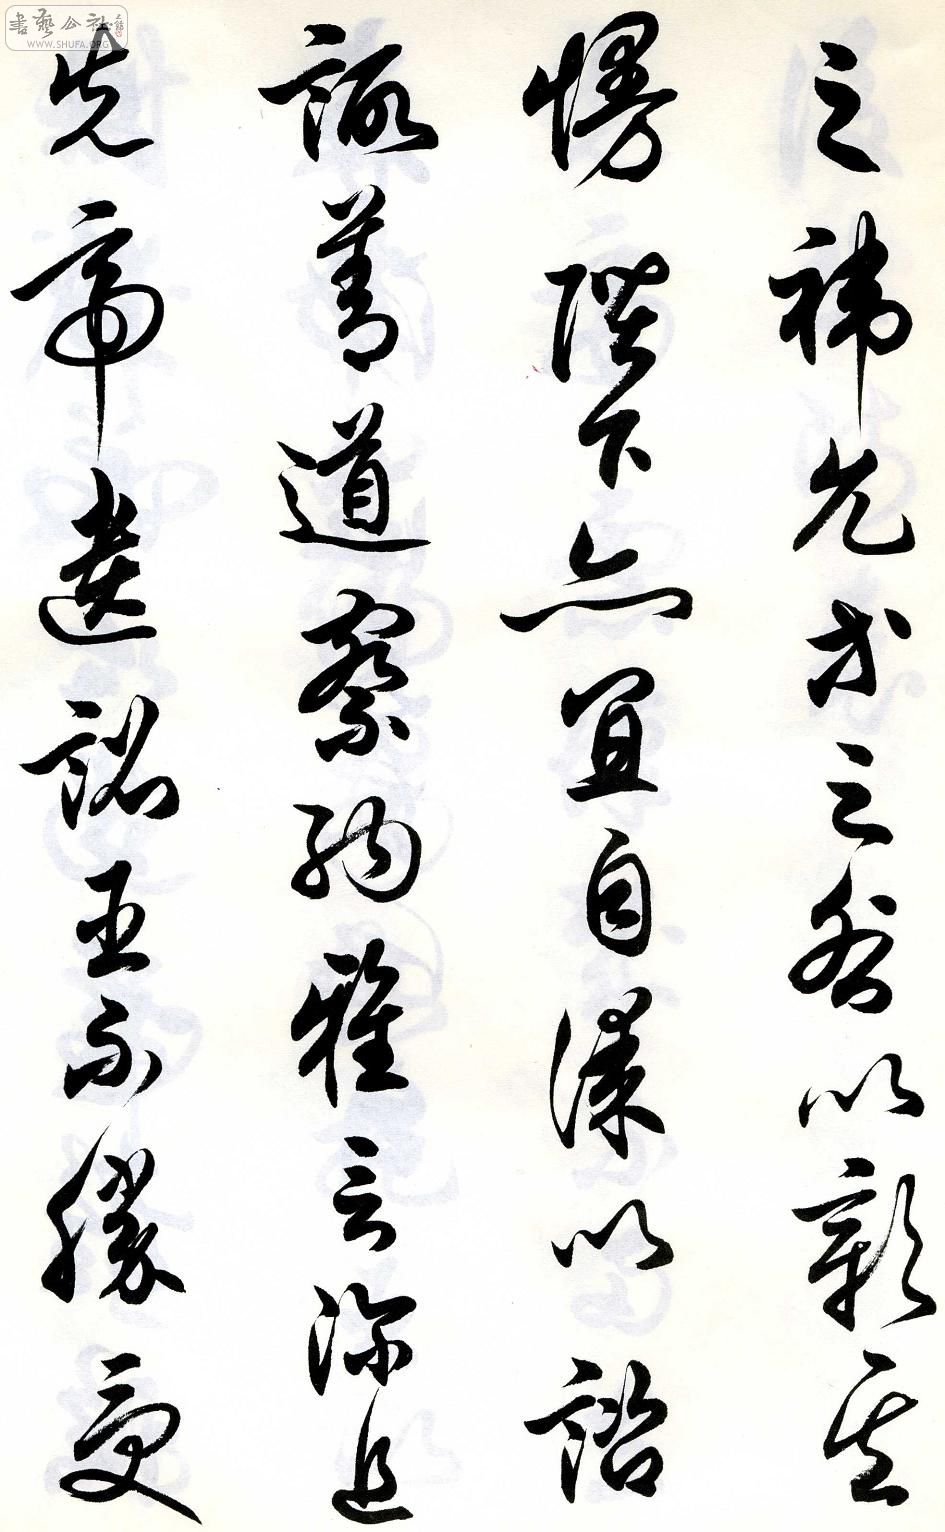 之禕允等之咎以彰其
慢陛下亦宜自謀以諮
諏善道察納雅言深追
先帝遺詔臣不勝受
書藝公社
WWW.SHUFA.ORG